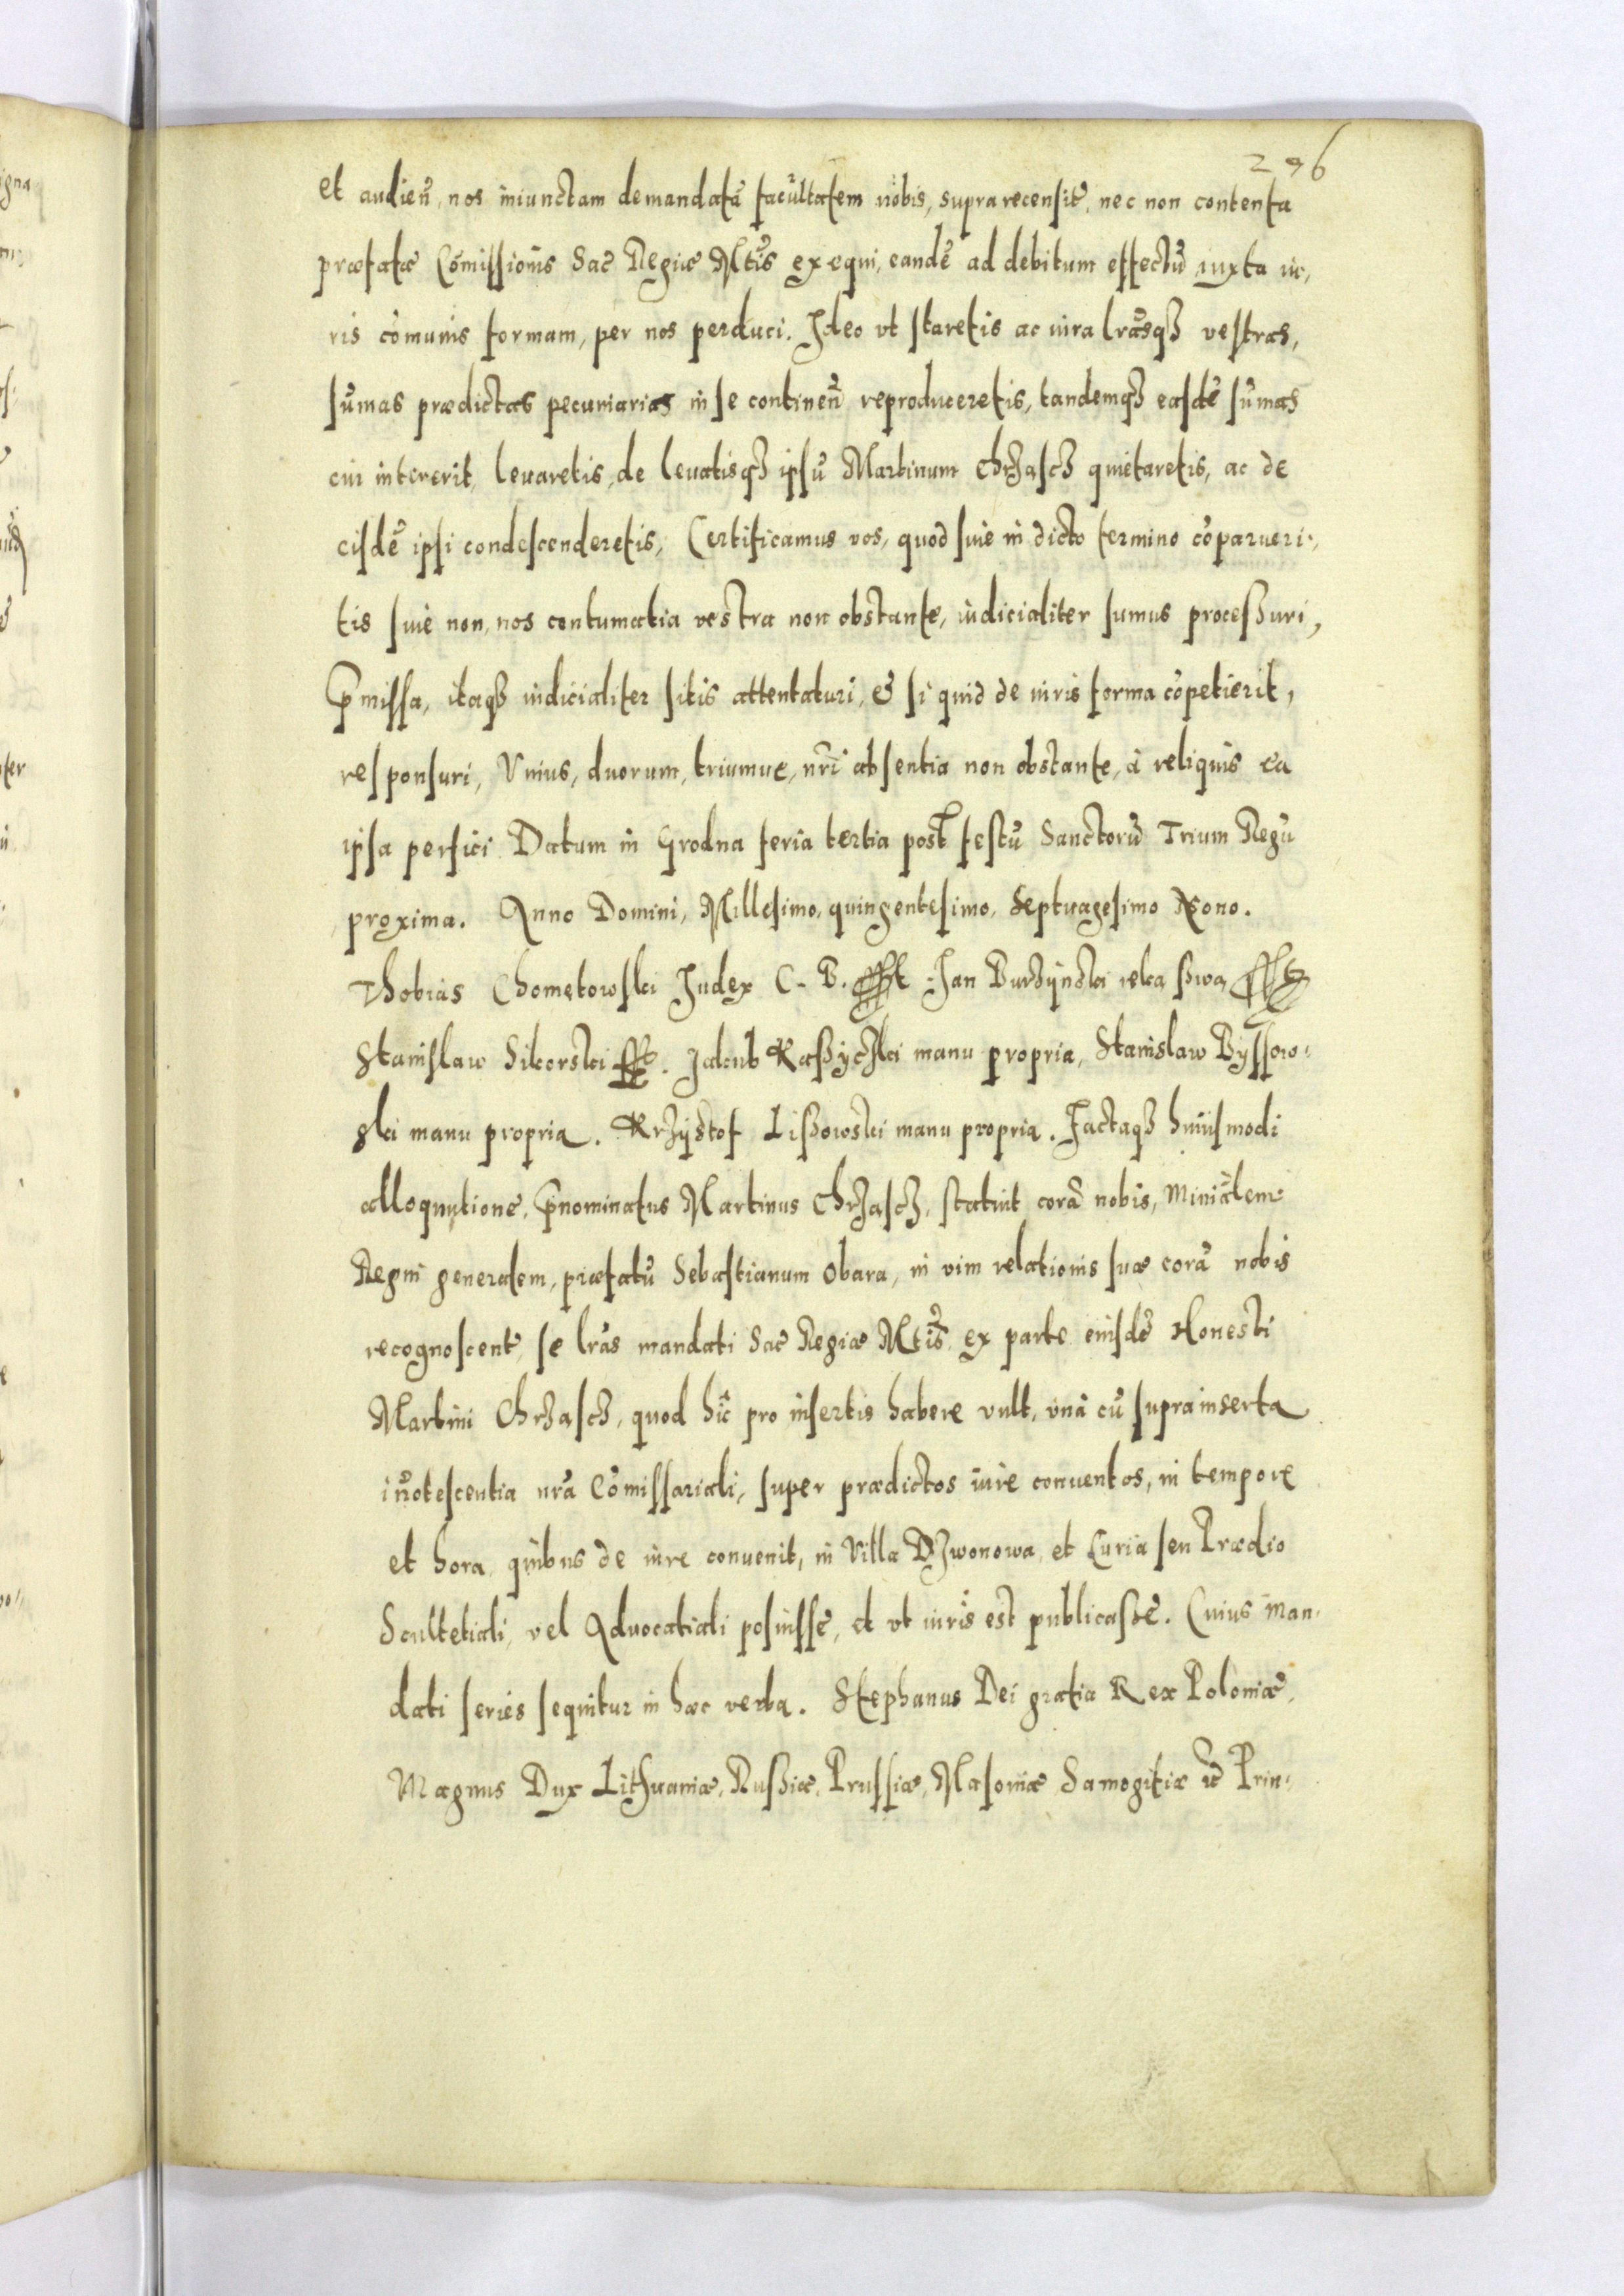 296
et audien̄, nos iniunctam demandatā facultatem nobis, supra recensit̄, nec non contenta
præfatæ Com̄issionis Sac̄ Regiæ M̄tis exequi, eandē ad debitum effectū iuxta iu-
ris com̄unis formam, per nos perduci. Ideo vt staretis ac iura lr̄asq3 vestras,
sum̄as prædictas pecuniarias in se continen̄ reproduceretis, tandemq3 easdē sum̄as
cui intererit, leuaretis, de leuatisq3 ipsū Martinum Chrzascz quietaretis, ac de
eisdē ipsi condescenderetis, Certificamus vos, quod siue in dicto termino cōparueri-
tis siue non, nos contumatia vestra non obstante, iudicialiter sumus processuri,
p̄missa, itaq3 iudicialiter sitis attentaturi, & si quid de iuris forma cōpetierit,
responsuri, Vnius, duorum, triumue, nr̄i absentia non obstante, à reliquis ea
ipsa perfici Datum in Grodna feria tertia post festū Sanctorū Trium Regū
proxima. Anno Domini, Millesimo, quingentesimo, Septuagesimo Nono.
Thobias Chometowski Judex C. B. Jan Burzÿnski reka swa
Stanislaw Sikorski. Jakub Raßÿczki manu propria, Stanislaw Byssow-
ski manu propria. Krzÿsztof Lißowski manu propria. Factaq3 huiusmodi
alloqunutione, p̄nominatus Martinus Chrzascz, statuit corā nobis, Ministāalem
Regni generalem, præfatū Sebastianum Obara, in vim relationis suæ corā nobis
recognoscent̄, se lr̄as mandati Sac̄ Regiæ M̄tis, ex parte eiusdē Honesti
Martini Chrzascz, quod hic pro insertis habere vult, vnà cū suprainserta
in̄otescentia nr̄a Com̄issariali, super prædictos iure conuentos, in tempore
et hora, quibus de iure conuenit, in Villa Dzwonowa, et Curia seu Prædio
Scultetiali, vel Aduocatiali posuisse, et vt iuris est publicasse. Cuius man-
dati series sequitur in hæc verba. Stephanus Dei gratia Rex Poloniæ,
Magnus Dux Lithuaniæ, Rußiæ, Prussiæ, Masoniæ Samogitiæ ꝛc̄ Prin-